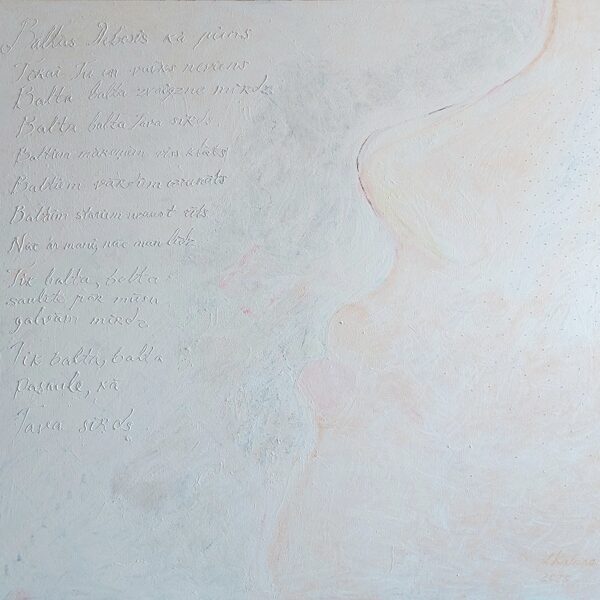 Baltas Debesis kā piens
Tikai Tu un vairs neviens
Balta balta zvaigzne mirdz
Balta balta Tava sirds
Baltiem mākoņiem viss klāts
Baltām
Baltiem stariem rīts
Nāc ar mani, nāc man līdz
Tik balta, balta
saulīte pār mūsu
galvām mirdz
Tik balta, balta
Pasaule, kā
Tava sirds